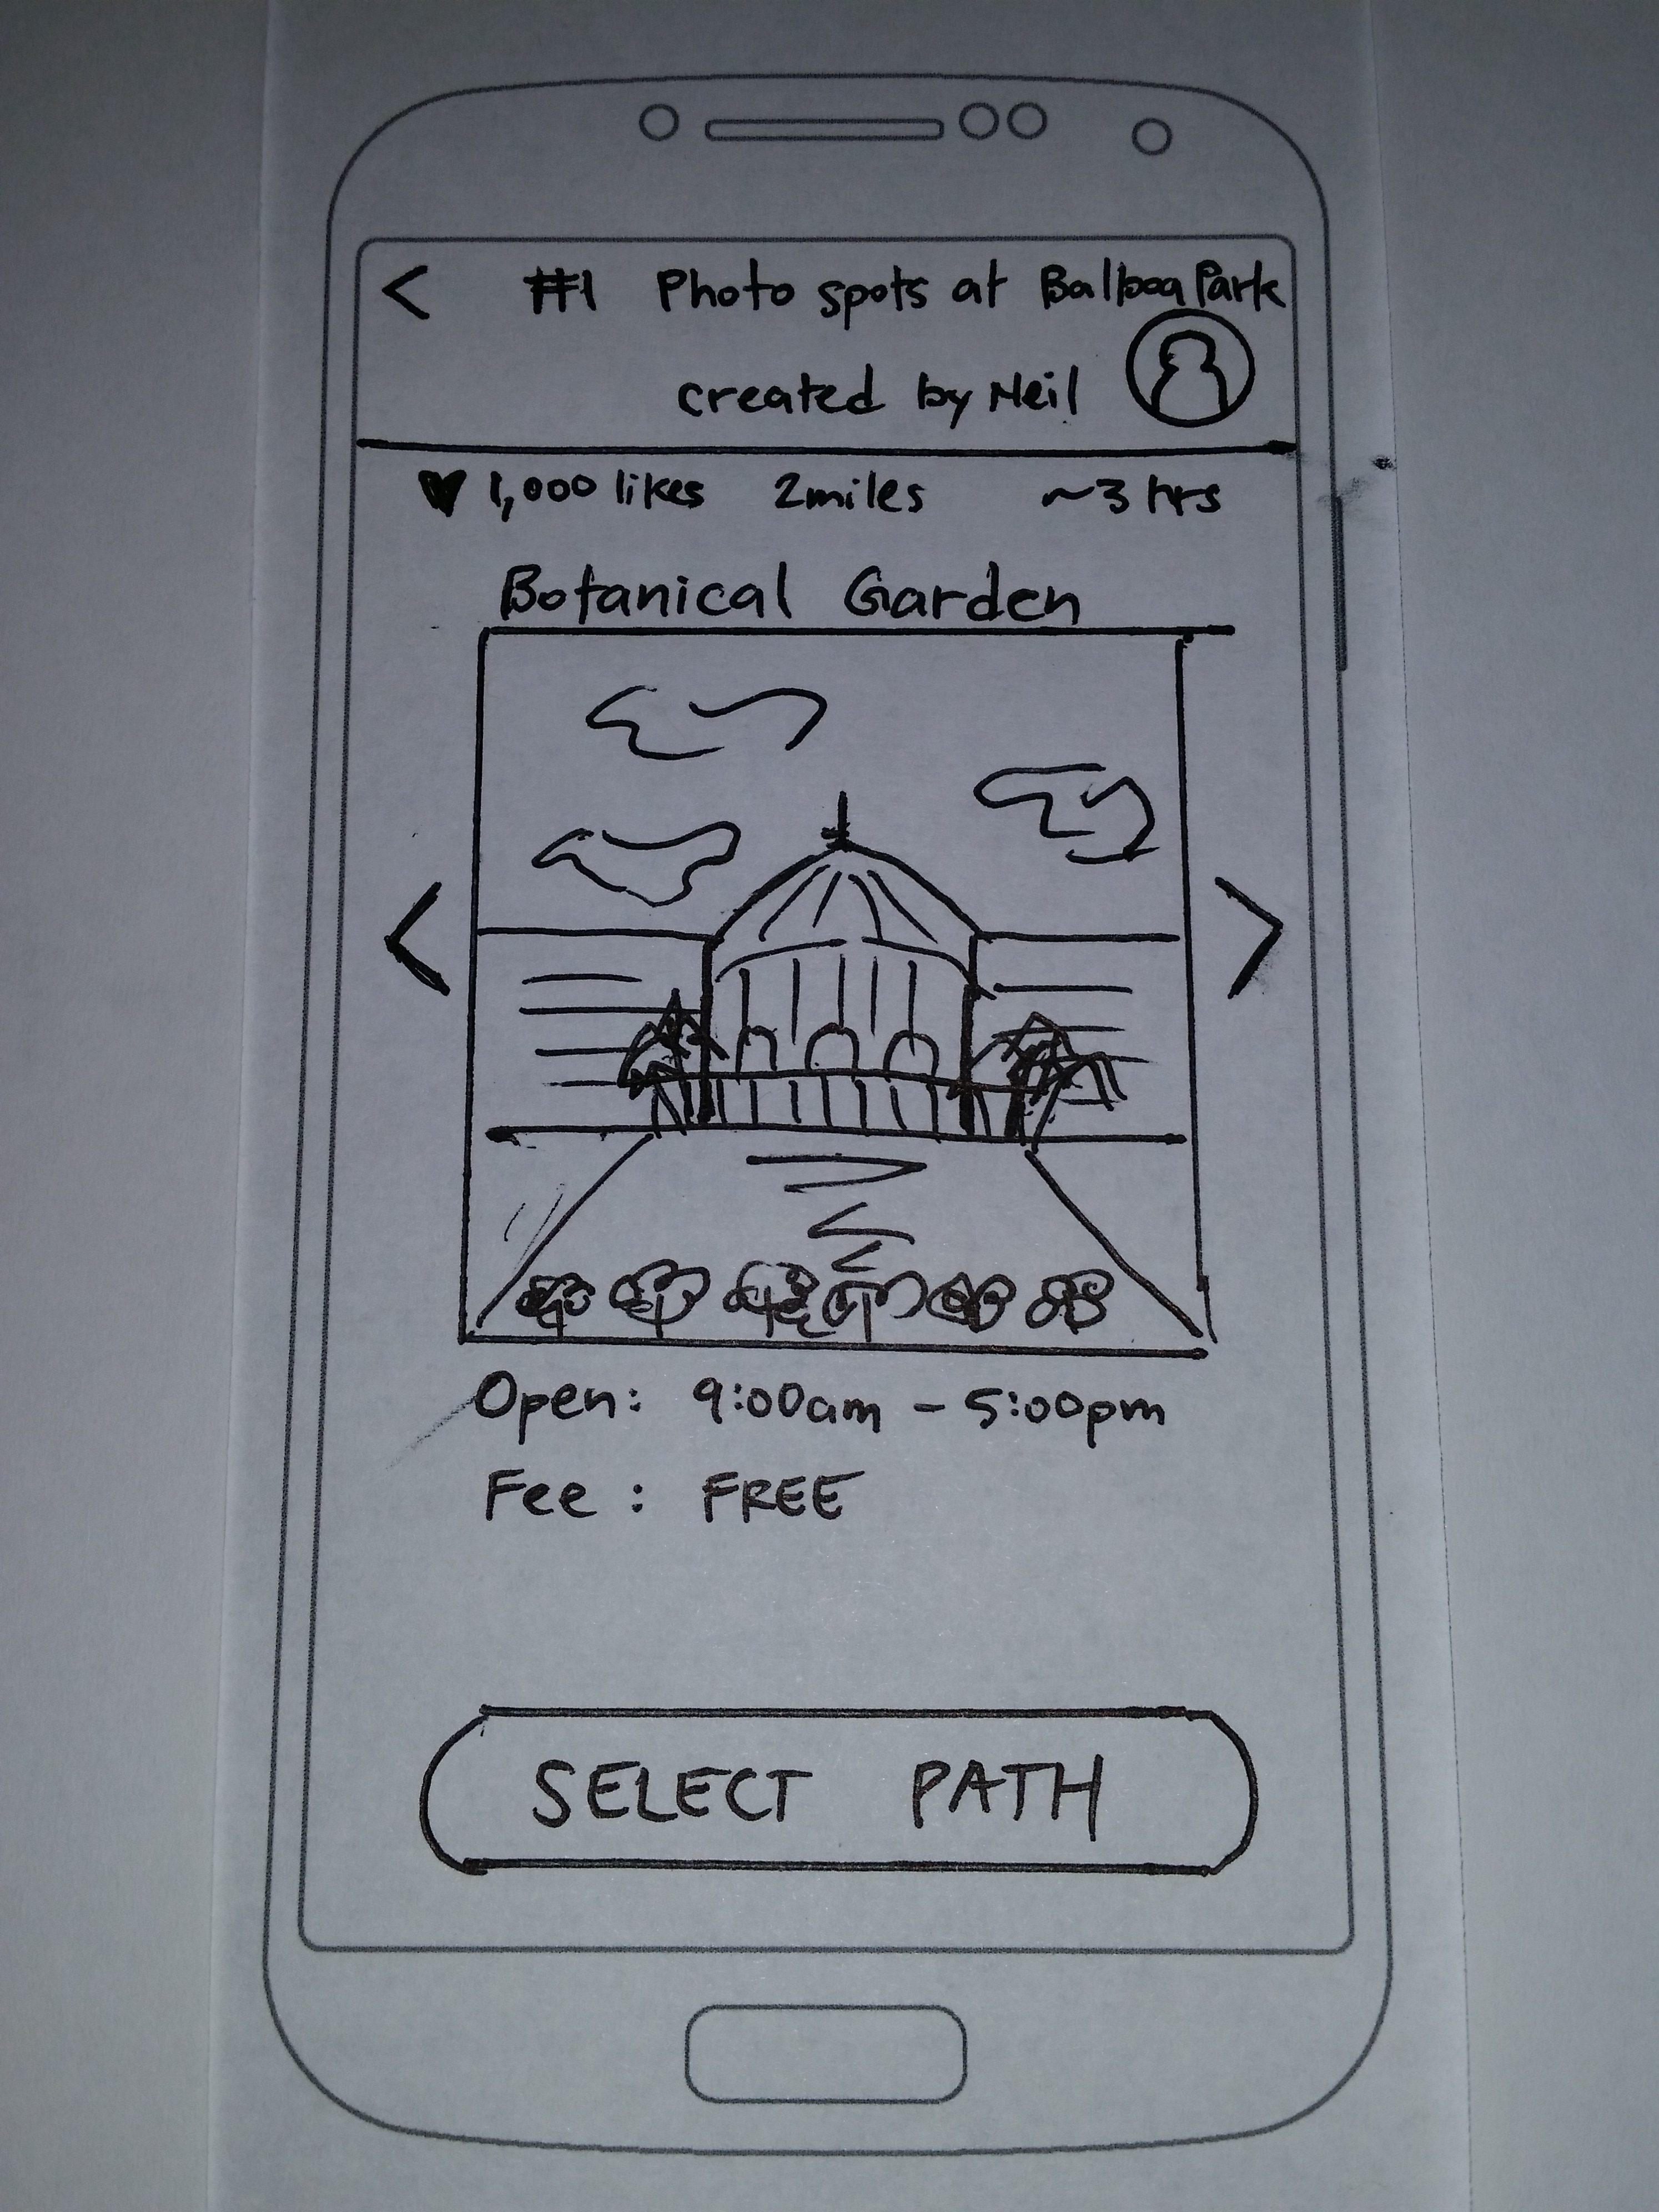 < #1 Photo spots at Balboa Park
created by Neil
♥ 1,000 likes 2miles ~3 hrs
Botanical Garden
< >
Open: 9:00am - 5:00pm
Fee : FREE
SELECT PATH